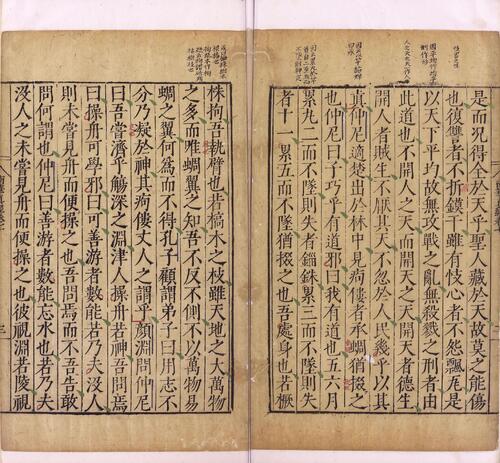 是而況得全於天乎聖人藏於天故莫之能傷
也復讐者不折鏌干雖有忮心者不怨飄瓦是
以天下平均故無攻戰之亂無殺戮之刑者由
此道也不開人之天而開天之天開天者德生
開人者賊生不厭其天不忽於人民幾乎以其
真仲尼適楚出於林中見痀僂者承蜩猶掇之
也仲尼曰子巧乎有道邪曰我有道也五六月
累丸二而不墜則失者錙銖累三而不墜則失
者十一累五而不墜猶掇之也吾處身也若橛
株拘吾執臂也若槁木之枝雖天地之大萬物
之多而唯蜩翼之知吾不反不側不以萬物易
蜩之翼何為而不得孔子顧謂弟子曰用志不
分乃凝於神其痀僂丈人之謂乎顏淵問仲尼
曰吾嘗濟乎觴深之淵津人操舟若神吾問焉
曰操舟可學邪曰可善游者數能若乃夫沒人
則未嘗見舟而便操之也吾問焉而不吾告敢
問何謂也仲尼曰善游者數能忘水也若乃夫
沒人之未嘗見舟而便操之也彼視淵若陵視